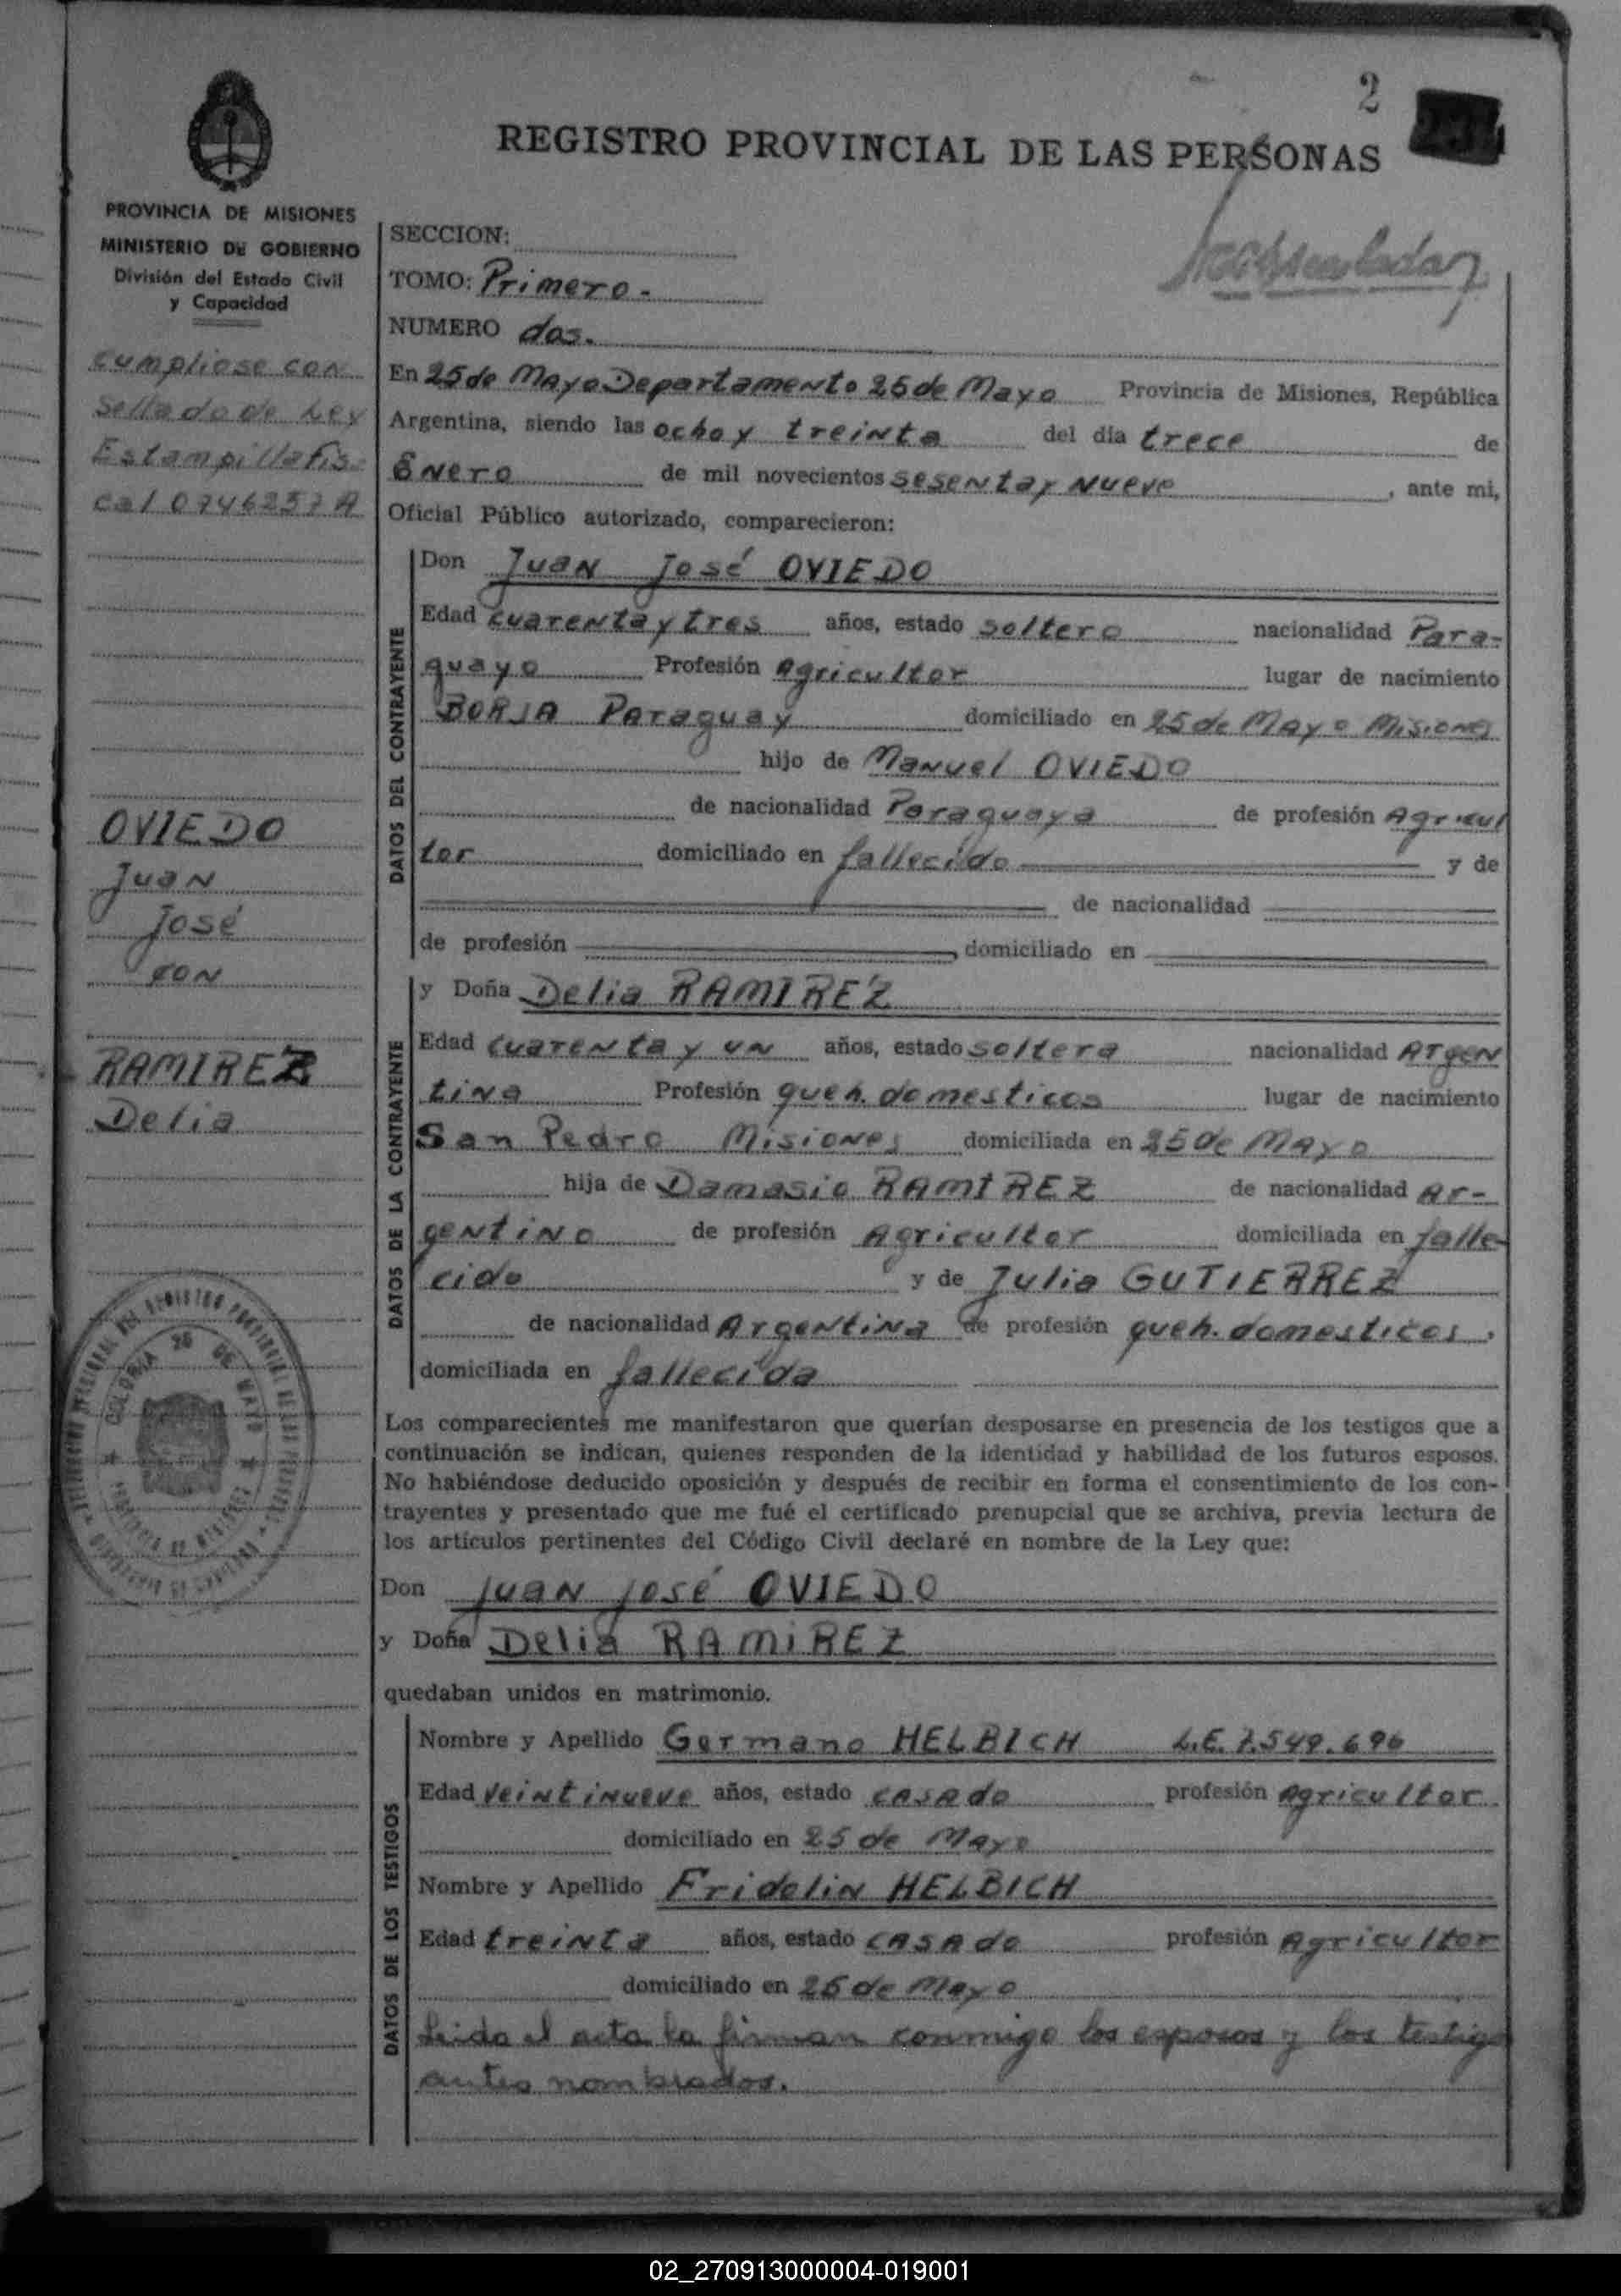 2
REGISTRO PROVINCIAL DE LAS PERSONAS
PROVINCIA DE MISIONES
MINISTERIO DE GOBIERNO
División del Estado Civil
y Capacidad
cumpliose con
Sellado de Ley
Estampilla fis-
cal 0746257 A
OVIEDO
Juan
José
con
RAMIREZ
Delia
COLONIA 25 DE MAYO
SECCION:
TOMO: Primero.-
NUMERO dos.
En 25 de Mayo Departamento 25 de Mayo Provincia de Misiones, República
Argentina, siendo las ocho y treinta del día trece de
Enero de mil novecientos sesenta y nueve, ante mi,
Oficial Público autorizado, comparecieron:
DATOS DEL CONTRAYENTE
Don Juan José OVIEDO
Edad cuarenta y tres años, estado soltero nacionalidad Para-
guayo Profesión Agricultor lugar de nacimiento
BORJA Paraguay domiciliado en 25 de Mayo Misiones
hijo de Manuel OVIEDO
de nacionalidad Paraguaya de profesión Agricul
tor domiciliado en fallecido y de
de nacionalidad
de profesión , domiciliado en
DATOS DE LA CONTRAYENTE
y Doña Delia RAMIREZ
Edad cuarenta y un años, estado soltera nacionalidad Argen
tina Profesión queh. domesticos lugar de nacimiento
San Pedro Misiones domiciliada en 25 de Mayo
hija de Damasio RAMIREZ de nacionalidad Ar-
gentino de profesión Agricultor domiciliada en falle-
cido y de Julia GUTIERREZ
de nacionalidad Argentina de profesión queh. domesticos,
domiciliada en fallecida
Los comparecientes me manifestaron que querían desposarse en presencia de los testigos que a
continuación se indican, quienes responden de la identidad y habilidad de los futuros esposos.
No habiéndose deducido oposición y después de recibir en forma el consentimiento de los con-
trayentes y presentado que me fué el certificado prenupcial que se archiva, previa lectura de
los artículos pertinentes del Código Civil declaré en nombre de la Ley que:
Don Juan José OVIEDO
y Doña Delia RAMIREZ
quedaban unidos en matrimonio.
DATOS DE LOS TESTIGOS
Nombre y Apellido Germano HELBICH L.E. 7.549.696
Edad veintinueve años, estado casado profesión Agricultor
domiciliado en 25 de Mayo
Nombre y Apellido Fridolin HELBICH
Edad treinta años, estado casado profesión Agricultor
domiciliado en 25 de Mayo
Leida el acta la firman conmigo los esposos y los testigos
antes nombrados.
02_270913000004-019001